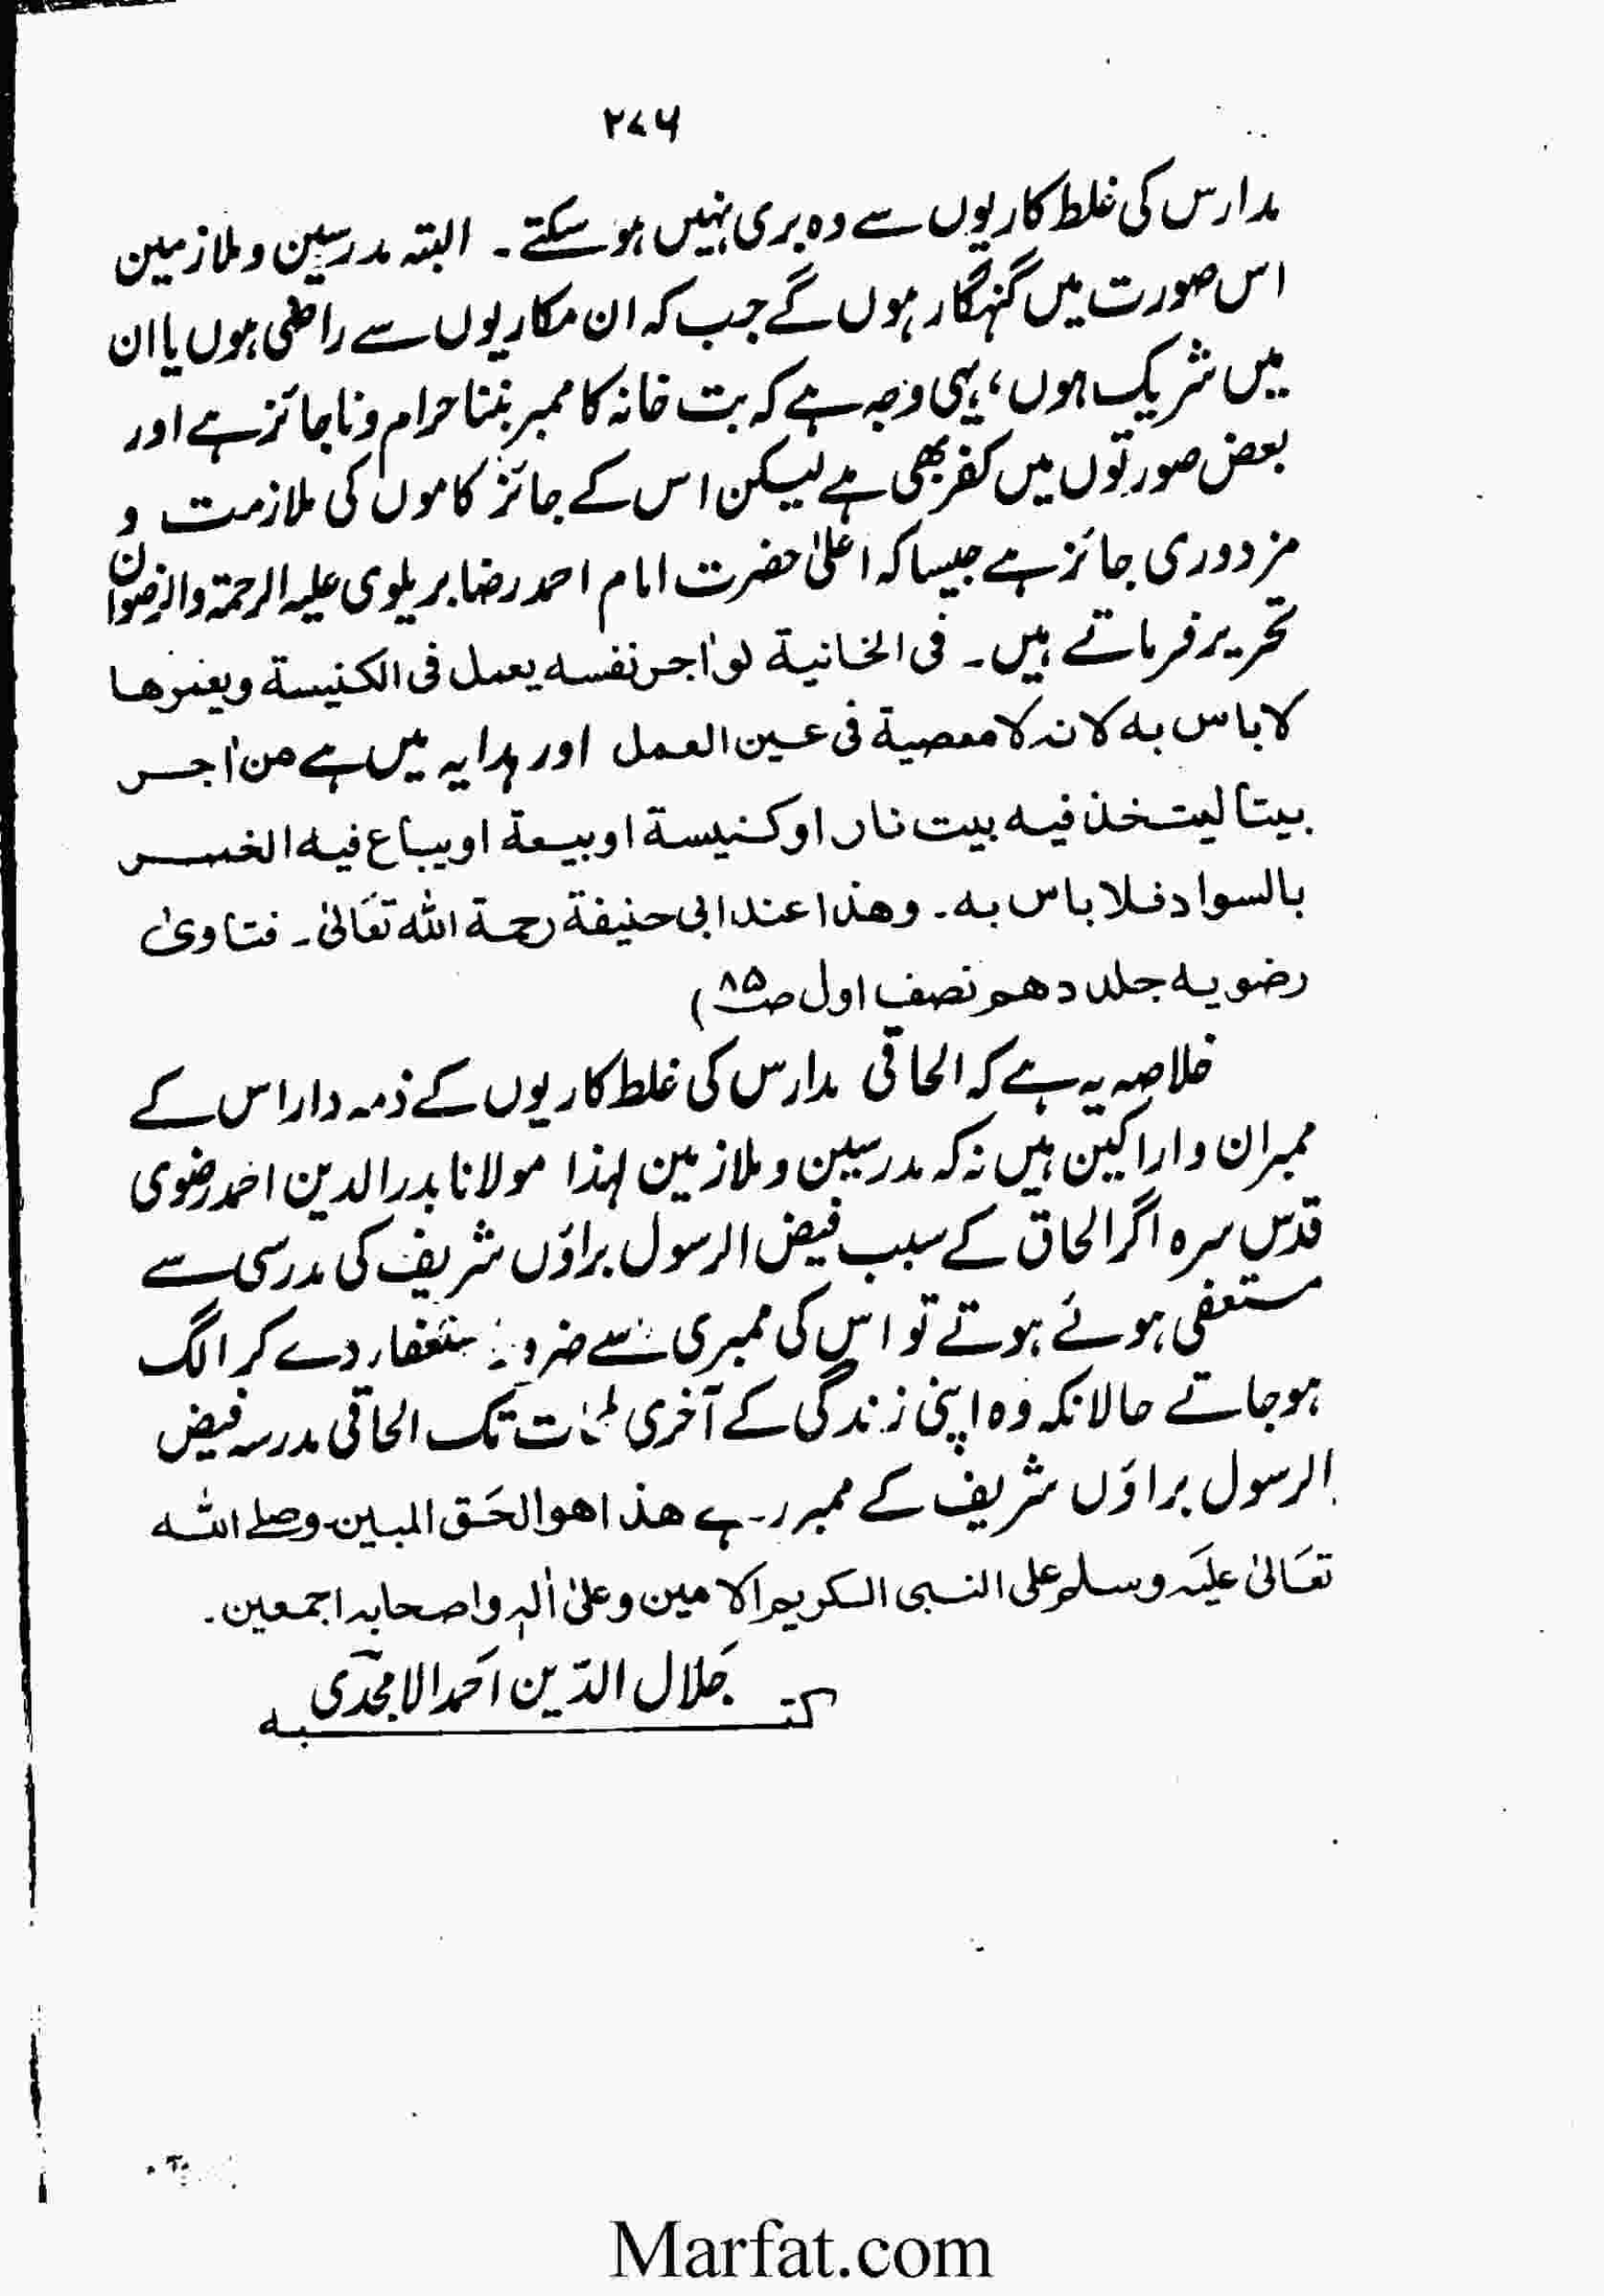 ۲۷۶
مدارس کی غلط کاریوں سے وہ بری نہیں ہو سکتے۔ البتہ مدرسین و ملازمین
اس صورت میں گنہگار ہوں گے جب کہ ان مکاریوں سے راضی ہوں یا ان
میں شریک ہوں، یہی وجہ ہے کہ بت خانہ کا ممبر بننا حرام و ناجائز ہے اور
بعض صورتوں میں کفر بھی ہے لیکن اس کے جائز کاموں کی ملازمت و
مزدوری جائز ہے جیسا کہ اعلیٰ حضرت امام احمد رضا بریلوی علیہ الرحمۃ والرضوان
تحریر فرماتے ہیں۔ فی الخانیة لو اٰجر نفسه یعمل فی الکنیسة ویعمرها
لا باس به لانه لا معصیة فی عین العمل اور ہدایہ میں ہے من اٰجر
بیتا لیتخذ فیه بیت نار او کنیسة او بیعة او یباع فیه الخمر
بالسواد فلا باس به۔ وهذا عند ابی حنیفة رحمة الله تعَالیٰ۔ فتاویٰ
رضویہ جلد دهم نصف اول صـ ۸۵)
خلاصہ یہ ہے کہ الحاقی مدارس کی غلط کاریوں کے ذمہ دار اس کے
ممبران و اراکین ہیں نہ کہ مدرسین و ملازمین لہذا مولانا بدر الدین احمد رضوی
قدس سرہ اگر الحاق کے سبب فیض الرسول براؤں شریف کی مدرسی سے
مستعفی ہوئے ہوتے تو اس کی ممبری سے ضرور استعفار دے کر الگ
ہو جاتے حالانکہ وہ اپنی زندگی کے آخری لمحات تک الحاقی مدرسہ فیض
الرسول براؤں شریف کے ممبر رہے هذا هو الحَق المبین وصلے الله
تعَالیٰ علیَہ وسلم علی النبی الکریم الامین وعلیٰ اٰلہ واصحابہ اجمعین۔
کتبہ جَلال الدّین اَحمد الامجدی
Marfat.com